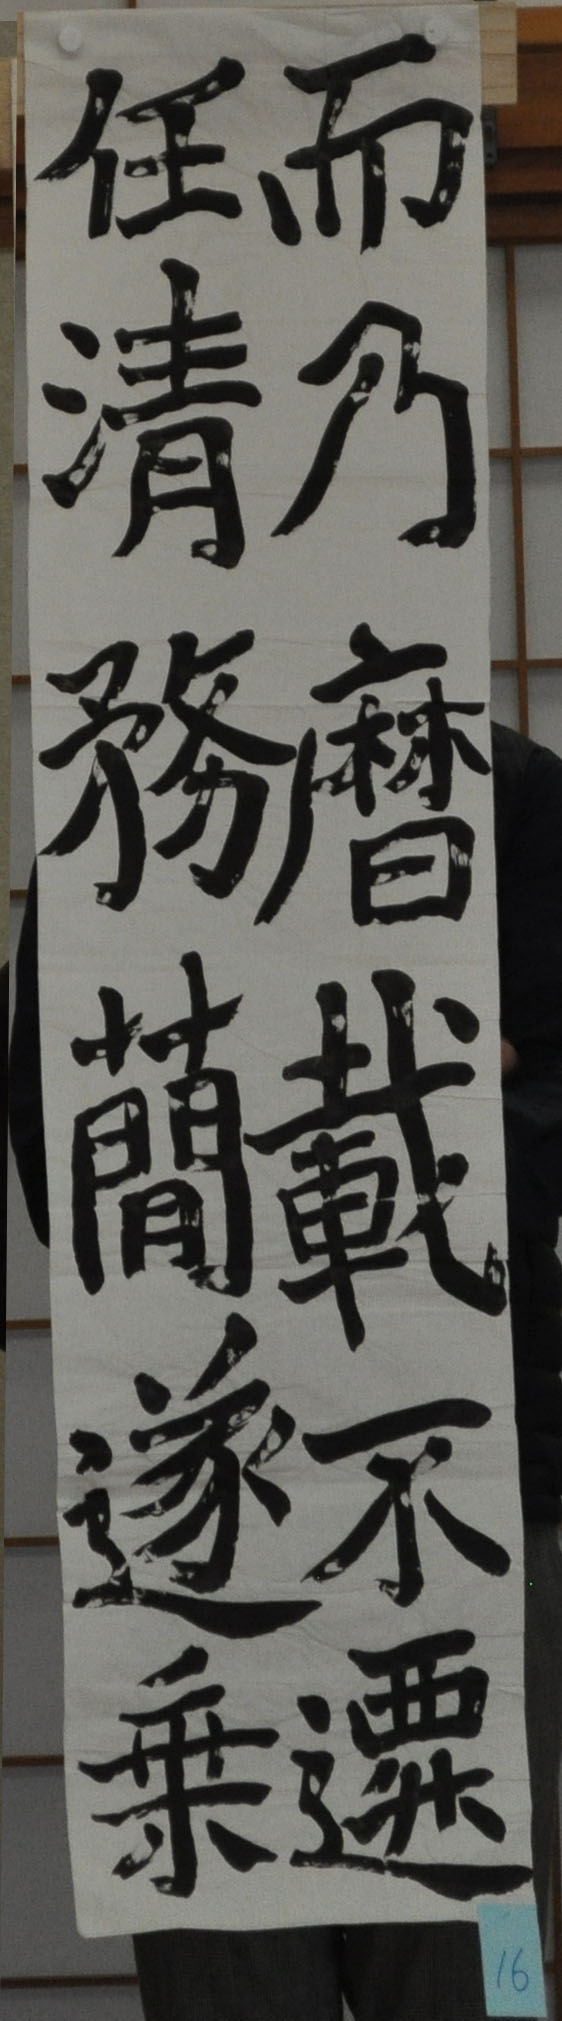 而乃暦載不遷
任清務簡遂乗
16